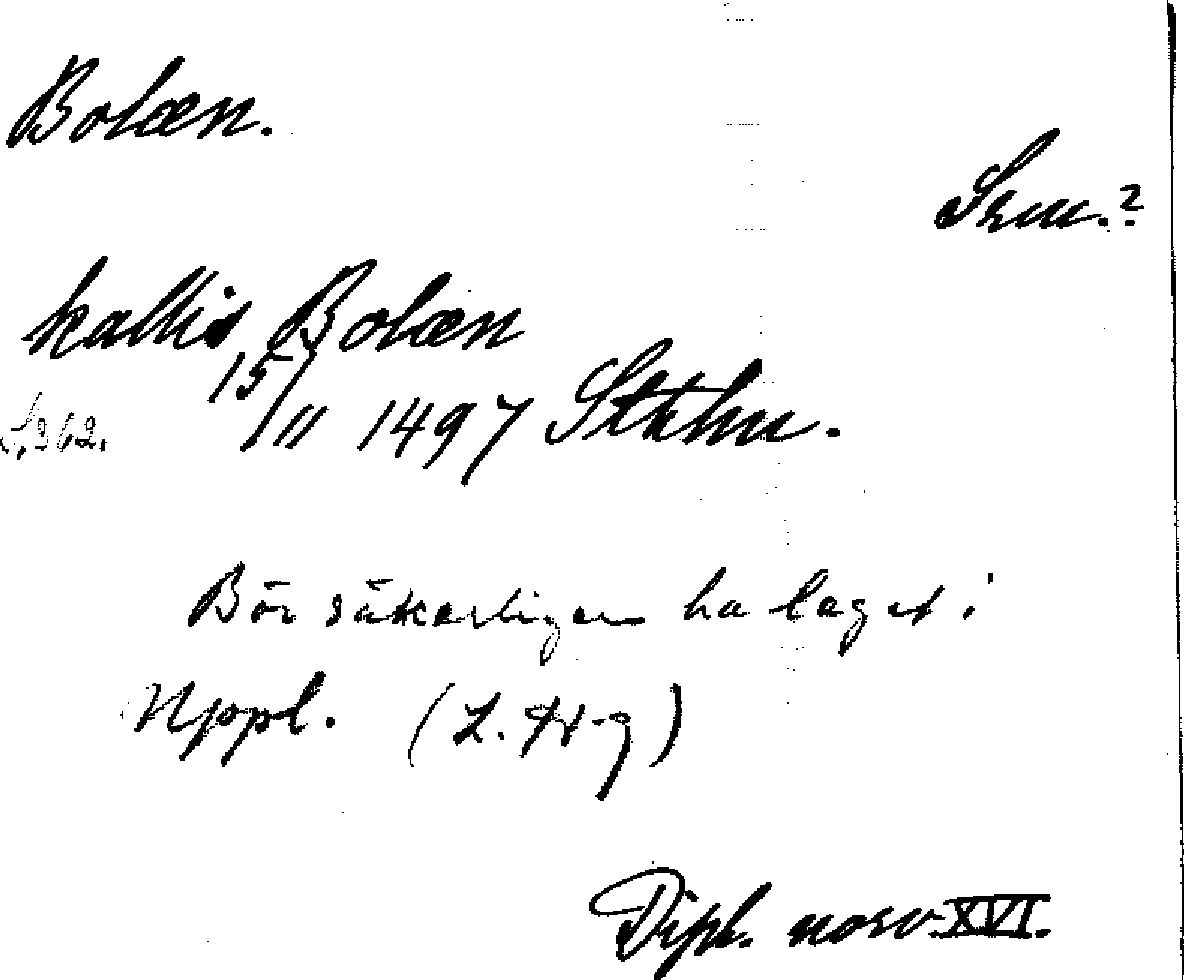 Bolæn.
Srm.?
kallis Bolæn
15/11 1497 Sthlm.
S. 362.
Bör säkerligen ha legat i
Uppl. (L. H-g)
Dipl. norv. XVI.